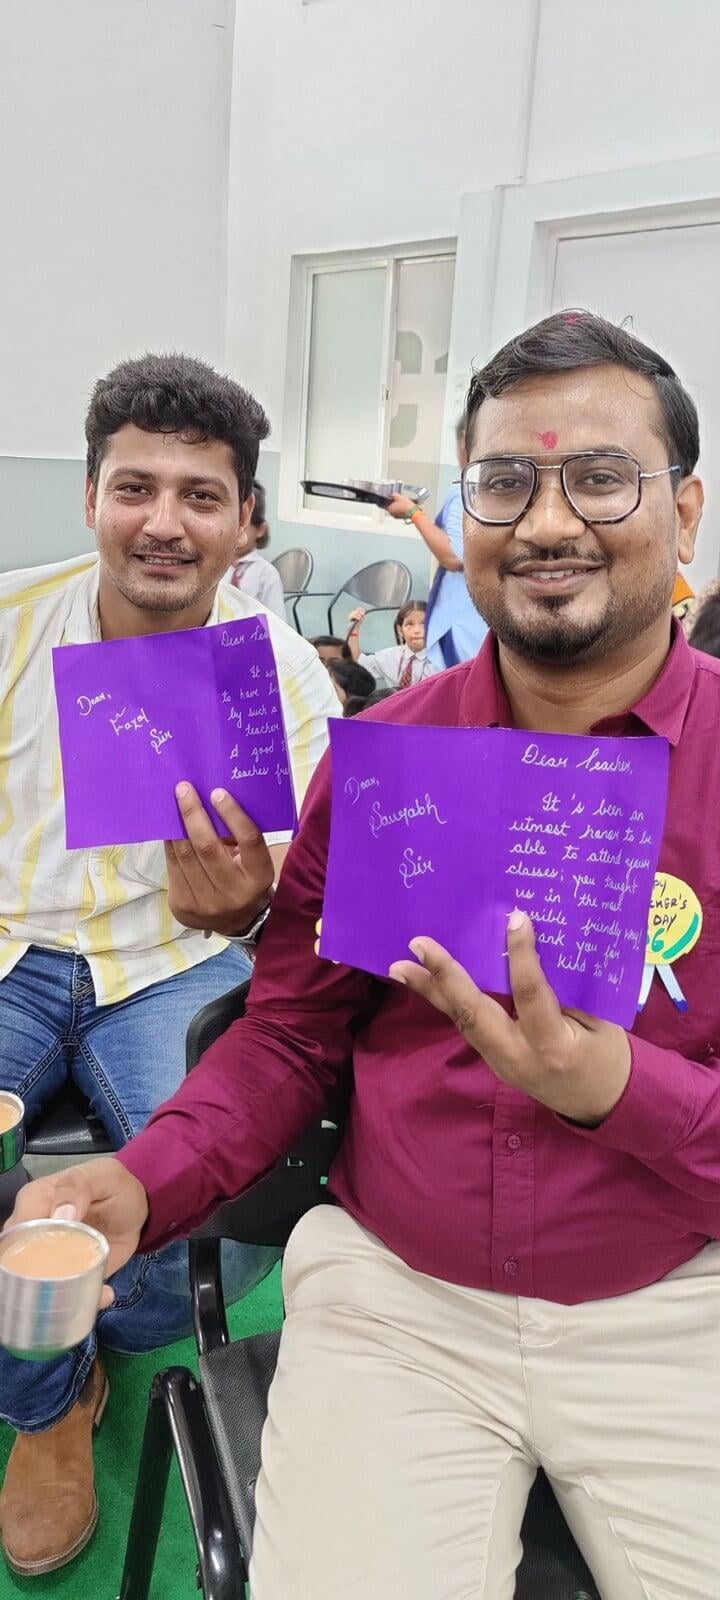 Dear,
Fazal
Sir
Dear Tea
It w
to have b
by such a
teacher
d good t
teaches fre
Dear,
Saurabh
Sir
Dear Teacher,
It's been an
utmost honor to be
able to attend your
classes; you taught
us in the most
possible friendly way!
Thank you for
kind to us!
PY
CHER'S
DAY